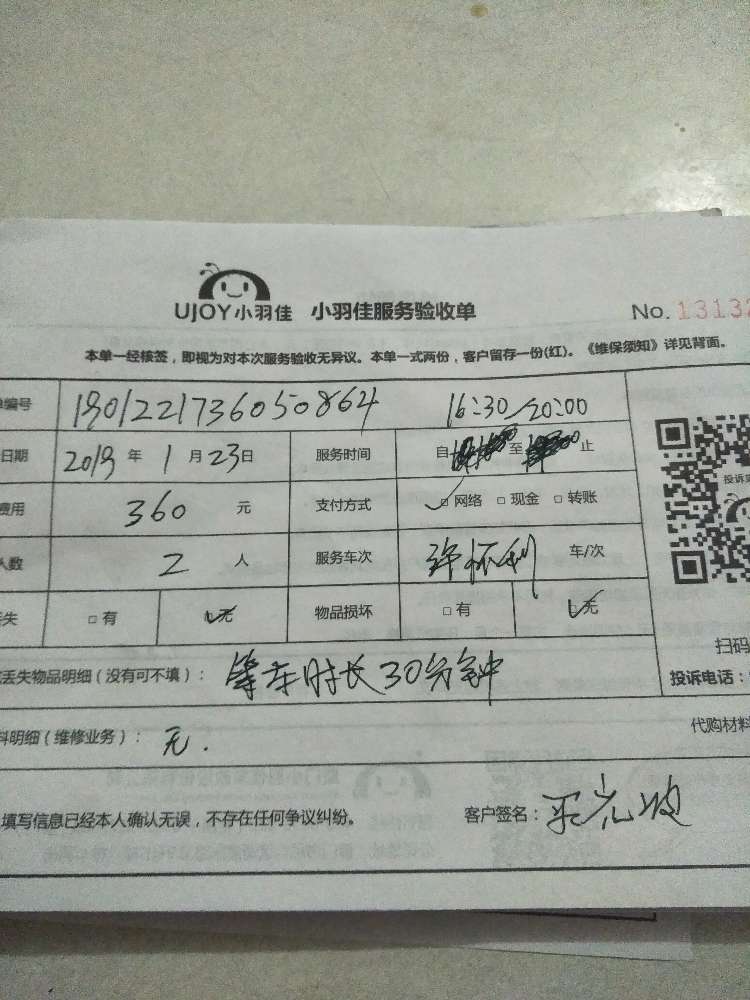 UJOY小羽佳 小羽佳服务验收单 No. 13132
本单一经核签，即视为对本次服务验收无异议。本单一式两份，客户留存一份(红)。《维保须知》详见背面。
单编号 190122173605086​4 16:30/20:00
日期 2019 年 1 月 23 日 服务时间 自 至 止
费用 360 元 支付方式 网络 现金 转账
人数 2 人 服务车次 许怀利 车/次
失 有 无 物品损坏 有 无
丢失物品明细（没有可不填）： 等车时长30分钟
料明细（维修业务）： 无.
填写信息已经本人确认无误，不存在任何争议纠纷。 客户签名：
投诉
扫码
投诉电话：
代购材料